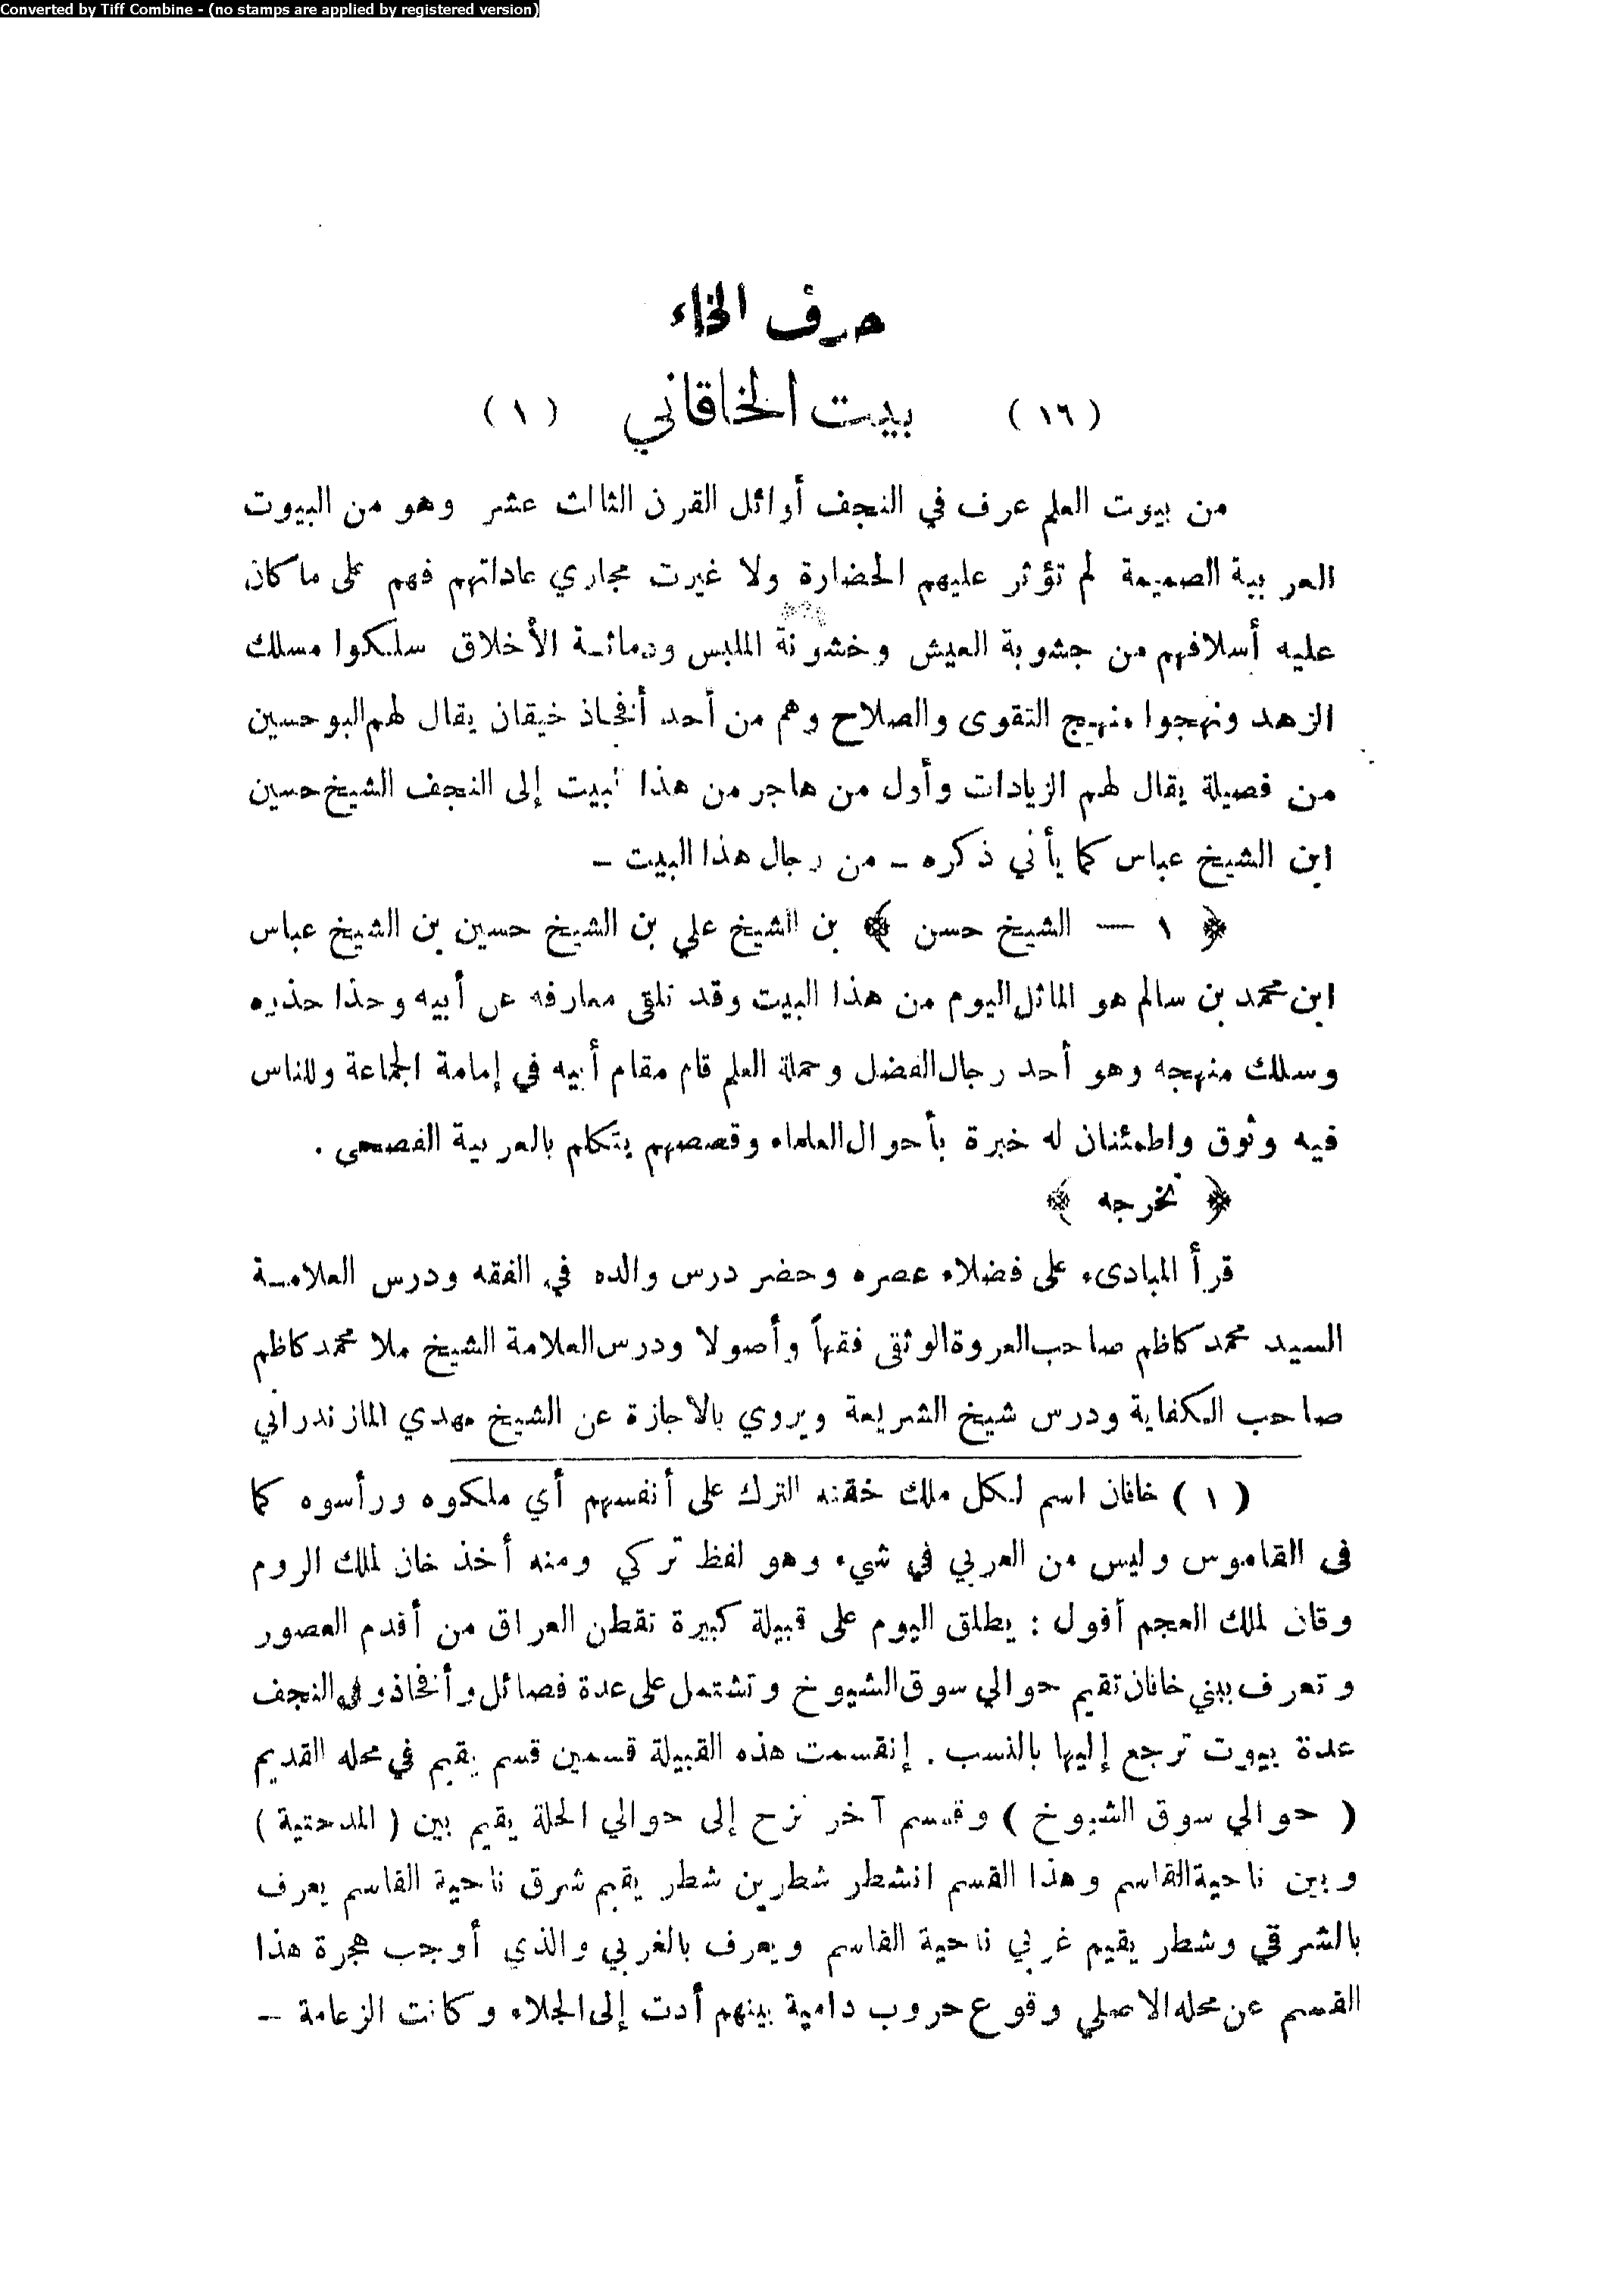 Converted by Tiff Combine - (no stamps are applied by registered version)
حرف الخاء
(١٦) بيت الخاقاني (١)
من بيوت العلم عرف في النجف أوائل القرن الثالث عشر وهو من البيوت
العربية الصميمة لم تؤثر عليهم الحضارة ولا غيرت مجاري عاداتهم فهم على ما كان
عليه أسلافهم من جشوبة العيش وخشونة الملبس ودماثة الأخلاق سلكوا مسلك
الزهد ونهجوا منهج التقوى والصلاح وهم من أحد أفخاذ خيقان يقال لهم البو حسين
من فصيلة يقال لهم الزيادات وأول من هاجر من هذا البيت إلى النجف الشيخ حسين
ابن الشيخ عباس كما يأتي ذكره – من رجال هذا البيت –
﴿ ١ — الشيخ حسن ﴾ بن الشيخ علي بن الشيخ حسين بن الشيخ عباس
ابن محمد بن سالم هو الماثل اليوم من هذا البيت وقد تلقى معارفه عن أبيه وحذا حذوه
وسلك منهجه وهو أحد رجال الفضل وحملة العلم قام مقام أبيه في إمامة الجماعة وللناس
فيه وثوق واطمئنان له خبرة بأحوال العلماء وقصصهم يتكلم بالعربية الفصحى .
﴿ تخرجه ﴾
قرأ المبادىء على فضلاء عصره وحضر درس والده في الفقه ودرس العلامة
السيد محمد كاظم صاحب العروة الوثقى فقهاً وأصولا ودرس العلامة الشيخ ملا محمد كاظم
صاحب الكفاية ودرس شيخ الشريعة ويروي بالاجازة عن الشيخ مهدي المازندراني
(١) خاقان اسم لكل ملك خقنه الترك على أنفسهم أي ملكوه ورأسوه كما
في القاموس وليس من العربي في شيء وهو لفظ تركي ومنه أخذ خان لملك الروم
وقان لملك العجم أقول : يطلق اليوم على قبيلة كبيرة تقطن العراق من أقدم العصور
وتعرف ببني خاقان تقيم حوالي سوق الشيوخ وتشتمل على عدة فصائل وأفخاذ وفي النجف
عدة بيوت ترجع إليها بالنسب . إنقسمت هذه القبيلة قسمين قسم يقيم في محله القديم
(حوالي سوق الشيوخ) وقسم آخر نزح إلى حوالي الحلة يقيم بين (المدحتية)
وبين ناحية القاسم وهذا القسم انشطر شطرين شطر يقيم شرق ناحية القاسم يعرف
بالشرقي وشطر يقيم غربي ناحية القاسم ويعرف بالغربي والذي أوجب هجرة هذا
القسم عن محله الاصلي وقوع حروب دامية بينهم أدت إلى الجلاء وكانت الزعامة –